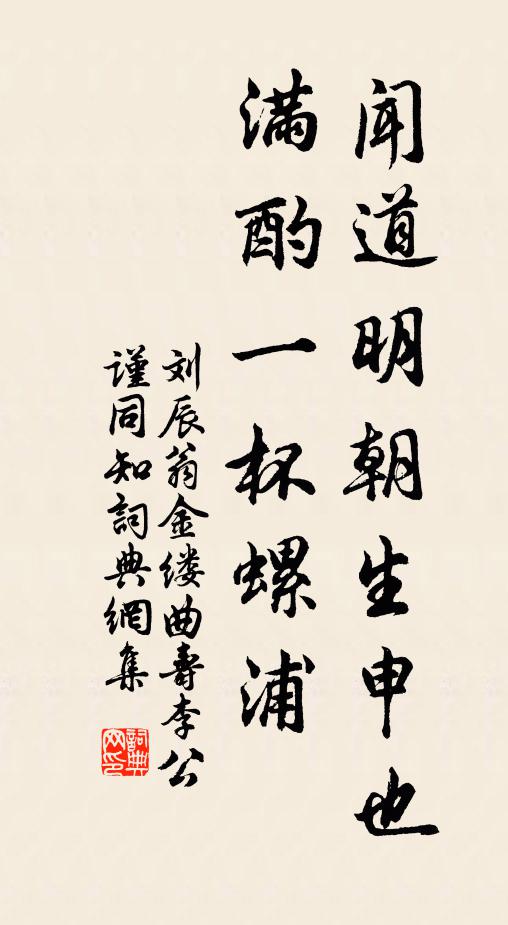 闻道明朝生申也
满酌一杯螺浦
刘辰翁金缕曲壽李公
谨同知詞典網集
詞典网印